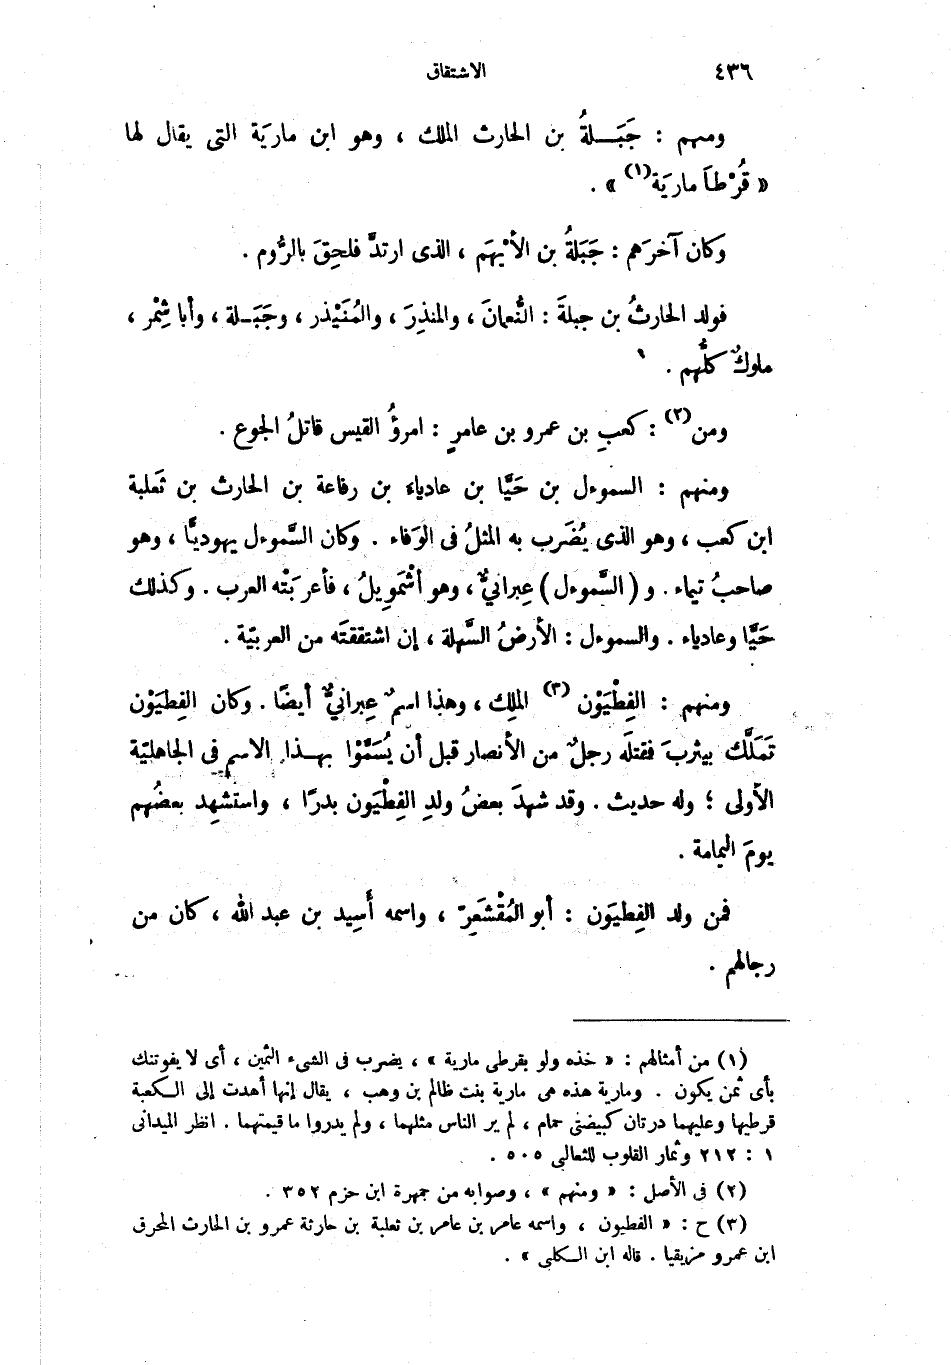 ٤٣٦
الاشتقاق
ومنهم : جَبَـــلةُ بن الحارث الملك ، وهو ابن مارِيَة التى يقال لها
« قُرْطَا مارِيَة(١) » .
وكان آخرَهم : جَبَلةُ بن الأيْهَم ، الذى ارتدَّ فلحِقَ بالرُّوم .
فولد الحارثُ بن جبلةَ : النُّعمانَ ، والمنذِرَ ، والمُنَيْذر ، وجَبَـلة ، وأبا شِمْر ،
ملوكٌ كلُّهم .
ومن(٢) : كعبِ بن عمرو بن عامرٍ : امرؤُ القيس قاتلُ الجوع .
ومنهم : السموءل بن حَيَّا بن عادياء بن رفاعة بن الحارث بن ثَعلبة
ابن كعب ، وهو الذى يُضرَب به المثلُ فى الوَفاء . وكان السَّموءل يهوديًّا ، وهو
صاحبُ تيماء . و ( السَّموءل ) عِبرانيٌّ ، وهو أشْمَويلُ ، فأعربَتْه العرب . وكذلك
حَيَّا وعادياء . والسموءل : الأرضُ السَّهلة ، إن اشتققتَه من العربيّة .
ومنهم : الفِطْيَوْن (٣) الملِك ، وهذا اسمٌ عِبرانيٌّ أيضًا . وكان الفِطيَوْن
تَمَلَّك بيثربَ فقتلَه رجلٌ من الأنصار قبل أن يُسَمَّوْا بهـذا الاسم فى الجاهليّة
الأولى ؛ وله حديث . وقد شهدَ بعضُ ولدِ الفِطْيَون بدرًا ، واستشهِد بعضُهم
يومَ اليمامة .
فمن ولد الفِطيَون : أبو المُقْشَعِرّ ، واسمه أَسِيد بن عبد الله ، كان من
رجالهم .
(١) من أمثالهم : « خذه ولو بقرطى مارية » ، يضرب فى الشىء الثمين ، أى لا يفوتنك
بأى ثمن يكون . ومارية هذه هى مارية بنت ظالم بن وهب ، يقال إنها أهدت إلى الـكعبة
قرطيها وعليهما درتان كبيضتى حمام ، لم ير الناس مثلهما ، ولم يدروا ما قيمتهما . انظر الميدانى
١ : ٢١٢ وثمار القلوب للثعالبى ٥٠٥ .
(٢) فى الأصل : « ومنهم » ، وصوابه من جمهرة ابن حزم ٣٥٢ .
(٣) ح : « الفطيون ، واسمه عامر بن عامر بن ثعلبة بن حارثة عمرو بن الحارث المحرق
ابن عمرو مزيقيا . قاله ابن الـكلبى » .